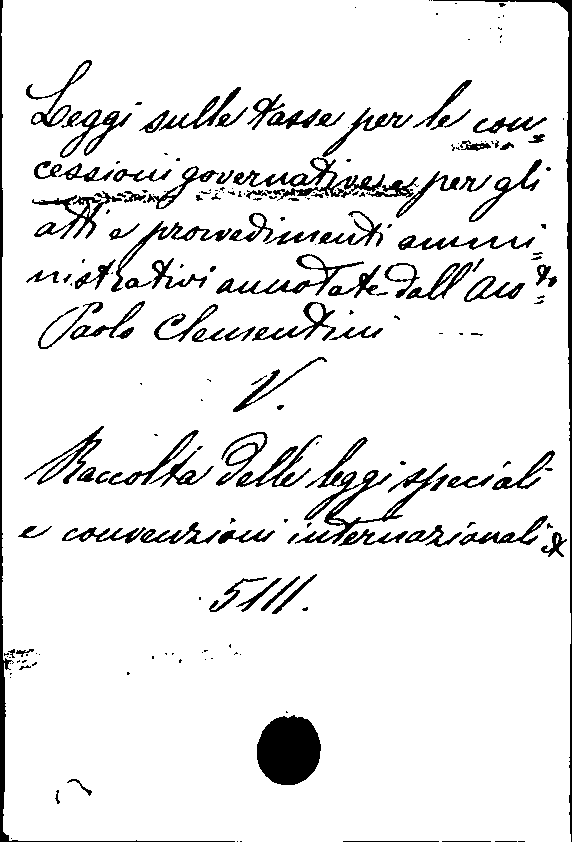 Leggi sulle tasse per le con=
cessioni governative e per gli
atti e provvedimenti ammi=
nistrativi annotate dall'Avo.to
Paolo Clementini
V.
Raccolta delle leggi speciali
e convenzioni internazionali &
5111.